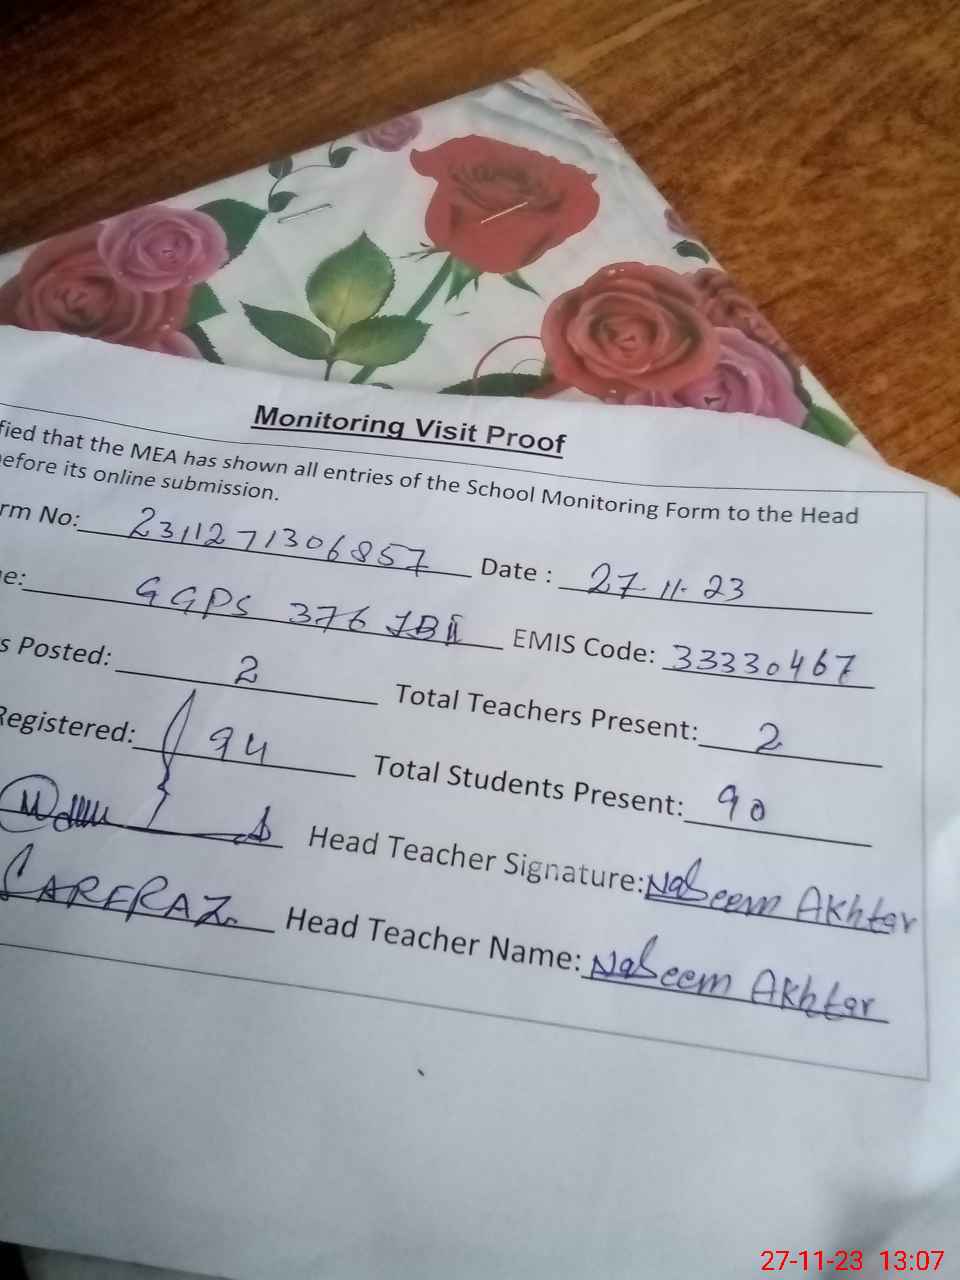 Monitoring Visit Proof
fied that the MEA has shown all entries of the School Monitoring Form to the Head
efore its online submission.
rm No: 2311271306857 Date : 27-11-23
e: GGPS 376 JBII EMIS Code: 33330467
s Posted: 2 Total Teachers Present: 2
Registered: 94 Total Students Present: 90
Head Teacher Signature: Naseem Akhtar
SARFRAZ. Head Teacher Name: Naseem Akhtar
27-11-23 13:07